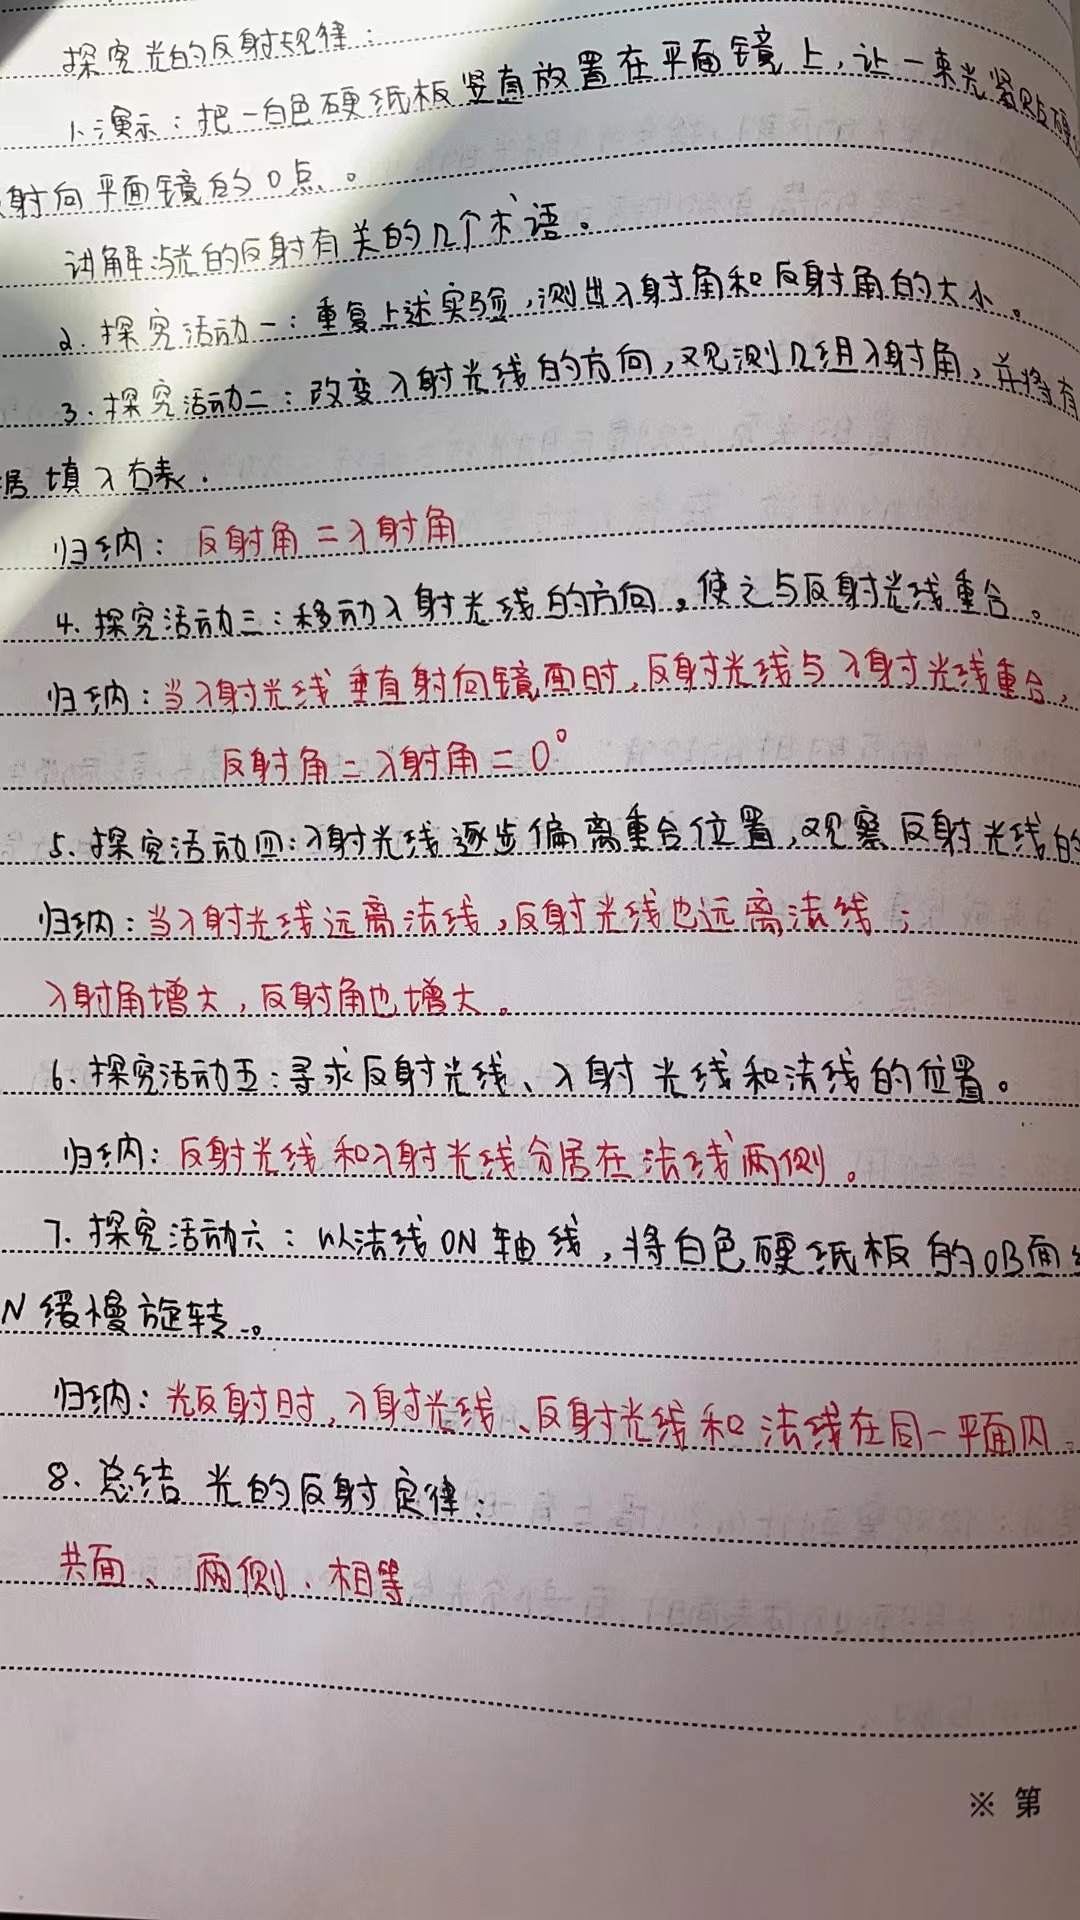 探究光的反射规律：
1、演示：把一白色硬纸板竖直放置在平面镜上，让一束光紧贴硬
射向平面镜的O点。
讲解与光的反射有关的几个术语。
2、探究活动一：重复上述实验，测出入射角和反射角的大小。
3、探究活动二：改变入射光线的方向，观测几组入射角，并将有
据填入右表.
归纳：反射角=入射角
4、探究活动三：移动入射光线的方向，使之与反射光线重合。
归纳：当入射光线垂直射向镜面时，反射光线与入射光线重合，
反射角=入射角=0°
5、探究活动四：入射光线逐步偏离重合位置，观察反射光线的
归纳：当入射光线远离法线，反射光线也远离法线；
入射角增大，反射角也增大。
6、探究活动五：寻求反射光线、入射光线和法线的位置。
归纳：反射光线和入射光线分居在法线两侧。
7、探究活动六：以法线ON轴线，将白色硬纸板的OB面
N缓慢旋转。
归纳：光反射时，入射光线、反射光线和法线在同一平面内。
8、总结光的反射定律：
共面、两侧、相等
※ 第